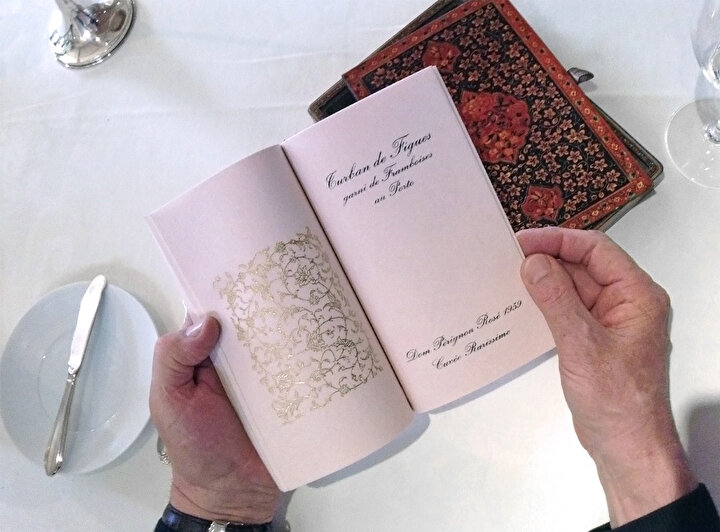 Turban de Figues
garni de Framboises
au Porto
Dom Pérignon Rosé 1959
Cuvée Rarissime